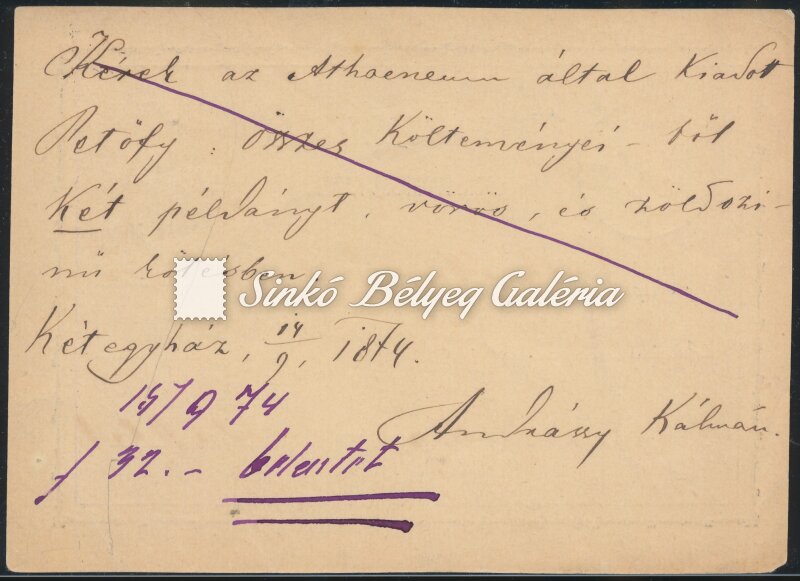 Kérek az Athaeneum által Kiadott
Petőfy : összes Költeményei - ből
Két példányt, vörös, és zöldszi-
nű kötésben.
Sinkó Bélyeg Galéria
Kétegyház, 14/9, 1874.
15/9 74
Andrássy Kálmán.
f 32. -